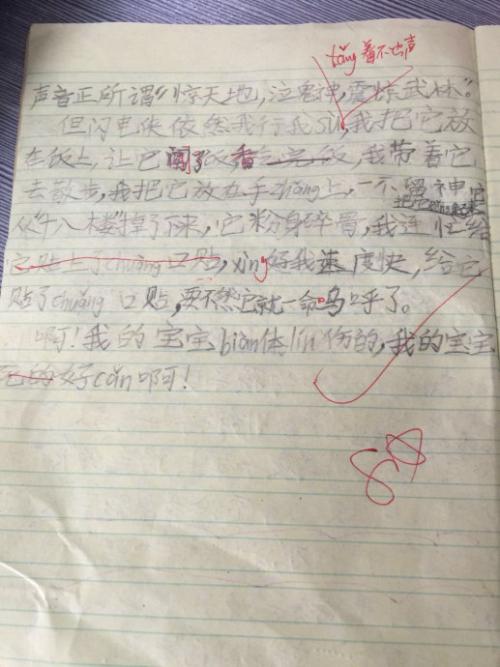 tǎng着不出声
声音正所谓"惊天地,泣鬼神,震惊武林"。
但闪电侠依然我行我sù,我把它放
在饭上,让它闻了饭香,我带着它
去散步,我把它放在手zhǎng上,一不留神它
从"十八楼"掉了下来,它粉身碎骨,我连忙给
它贴上了chuāng口贴,xìng好我速度快,给它
贴了chuāng口贴,要不然它就一命呜呼了。
啊!我的宝宝biàn体lín伤的,我的宝宝
它的好cǎn啊!